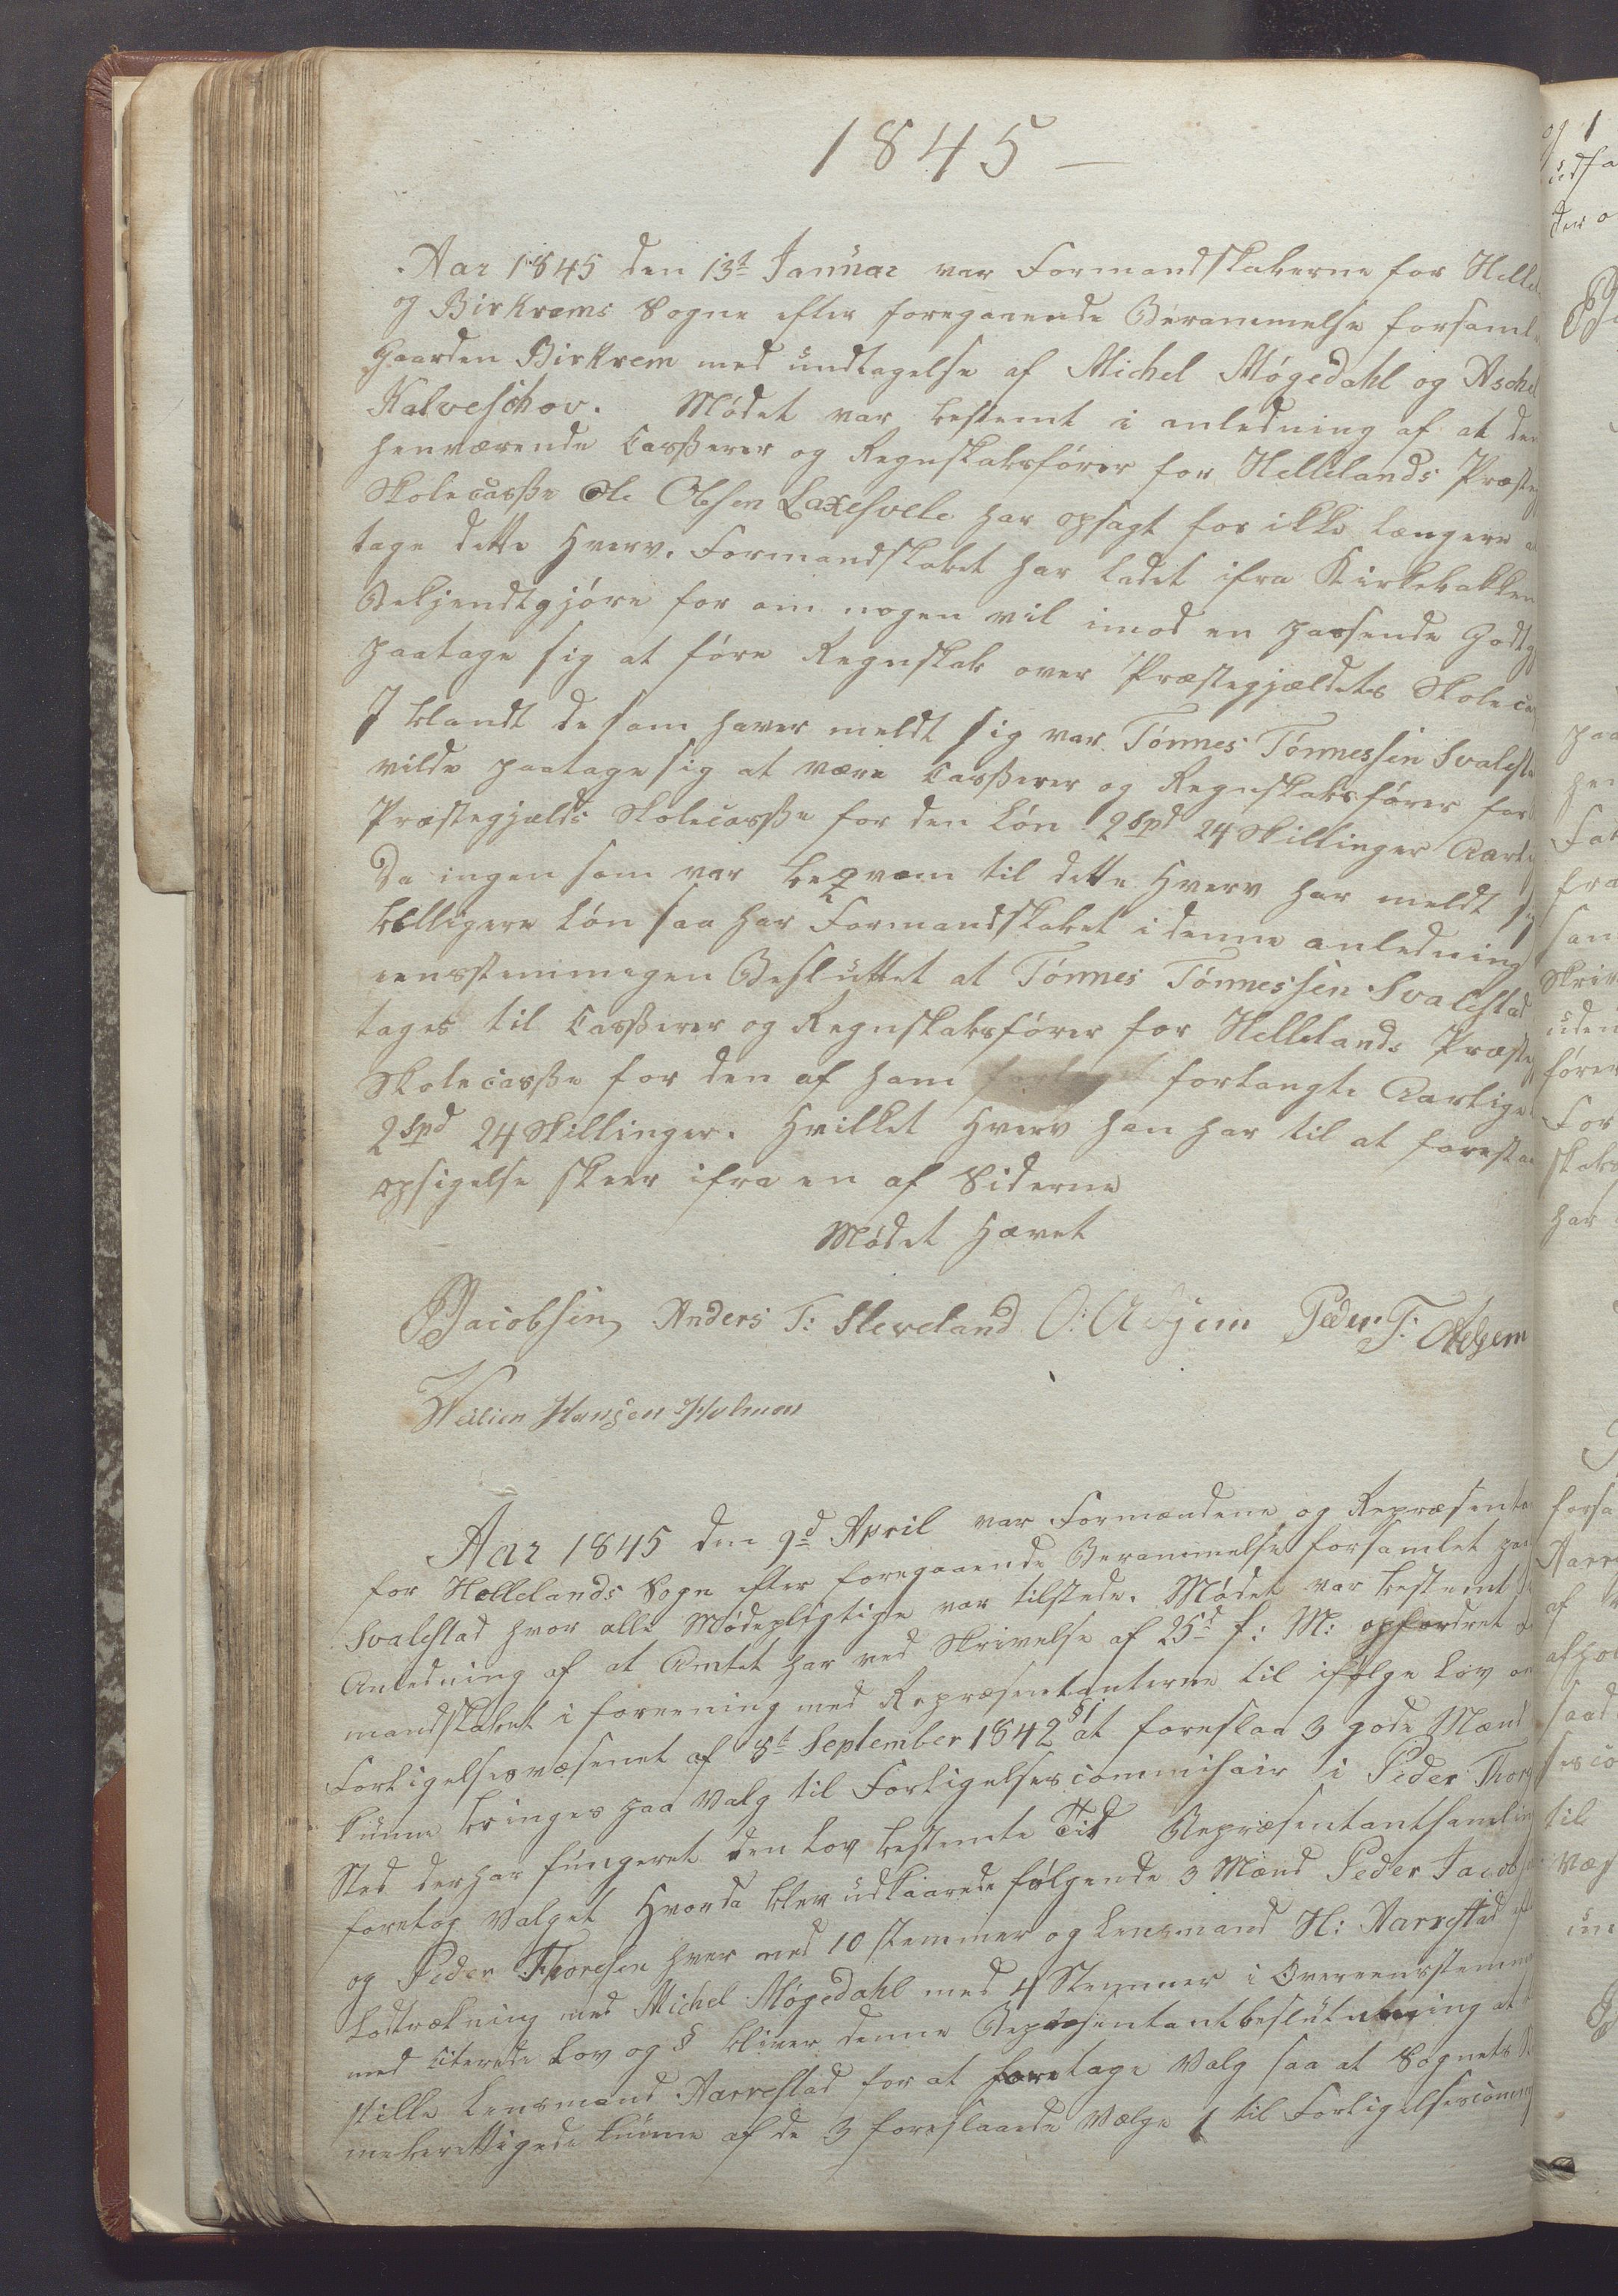 1845 –
Aar 1845 den 13de Januar var Formandskaberne for Helle
og Birkrems Sogne efter foregaaende Berammelse forsaml
Gaarden Birkrem med undtagelse af Michel Møgedahl og Aschel
Kalveschov. Mødet var bestemt i anledning af at den
henværende Casserer og Regnskabsfører for Hellelands Præsteg
Skolecasse Ole Olsen Laxesvele har opsagt for ikke længere a
tage dette Hverv. Formandskabet har ladet ifra Kirkebakken
Bekjendtgjøre for om nogen vil imod en passende Godtg
paatage sig at føre Regnskab over Præstegjældets Skoleca
I blandt de som haver meldt sig var Tønnes Tønnessen Svalesta
vilde paatage sig at være Casserer og Regnskabsfører for
Præstegjælds Skolecasse for den Løn 2 Spd 24 Skillinger Aarli
Da ingen som var beqvem til dette Hverv har meldt sig
billigere Løn saa har Formandskabet i denne anledning
eensstemmigen Besluttet at Tønnes Tønnessen Svalestad
tages til Casserer og Regnskabsfører for Hellelands Præsteg
Skolecasse for den af ham forlangte Aarlige
2 Spd 24 Skillinger. Hvilket Hverv han har til at forestaa
opsigelse skeer ifra en af Siderne
Mødet Hævet
PJacobsen Anders T: Sleveland O: Adsjem Peder T: Adsjem
Hansen Holmen
Aar 1845 den 9d April var Formændene og Repræsenta
for Hellelands Sogn efter foregaaende Berammelse forsamlet paa
Svalestad hvor alle Mødepligtige var tilstede. Mødet var bestemt
Anledning af at Amtet har ved Skrivelse af 25d f: M: opfordret
mandskabet i forening med Repræsentanterne til ifølge Lov om
Forligelsesvæsenet af 8de September 1842 §1 at foreslaa 3 gode Mænd
kunne bringes paa Valg til Forligelsescommisair i Peder Thors
Sted der har fungeret den Lov bestemte Tid Repræsentantsamlin
foretog Valget Hvorda blev udkaarede følgende 3 Mænd Peder Jacobs
og Peder Thorsen hver med 10 stemmer og Lensmand H: Aarrestad eft
Lodtrækning med Michel Møgedahl med 4 Stemmer i Overeensstemm
med citerede Lov og § bliver denne Repræsentantbeslutning at
stille Lensmand Aarrestad for at foretage Valg saa at Sognets
meberettigede kunne af de 3 foreslaaede Vælge 1 til Forligelsescomm